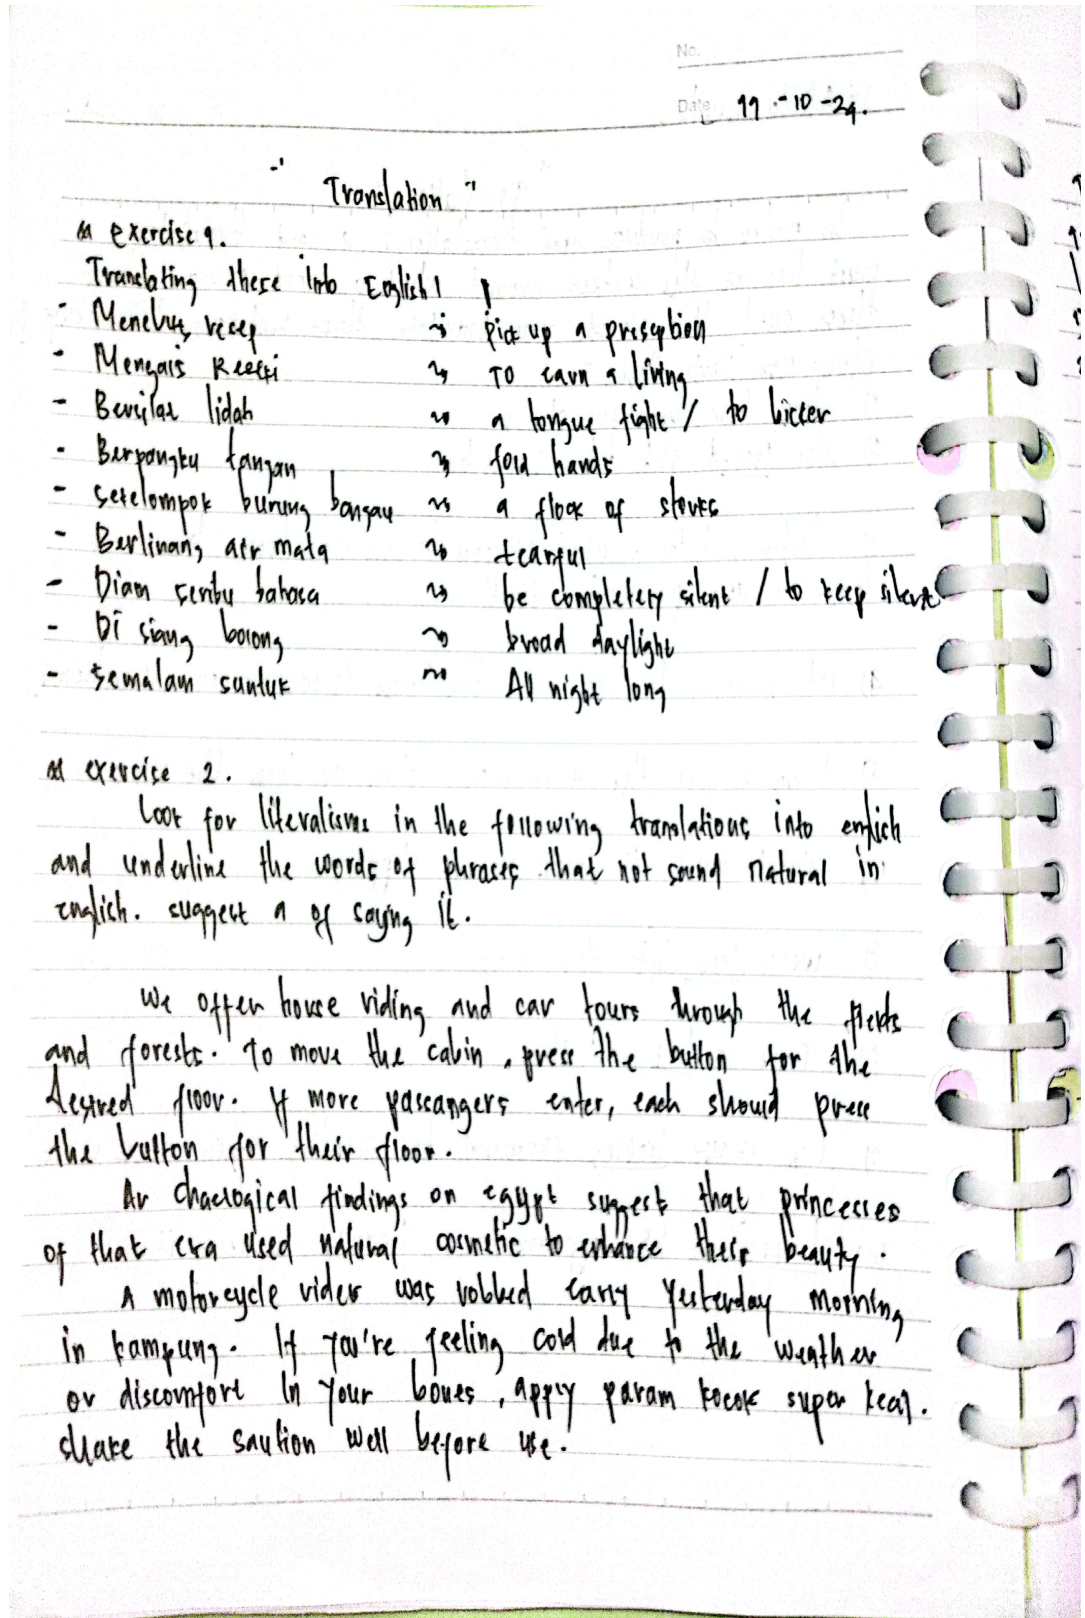 No.
Date 11 - 10 - 24.
" Translation "
exercise 1.
Translating these into English!
- Menebus resep ~ pick up a presception
- Mengais Rezeki ~ To earn a living
- Bersilat lidah ~ a tongue fight / to bicker
- Berpangku tangan ~ fold hands
- sekelompok burung bangau ~ a flock of storks
- Berlinang air mata ~ tearful
- Diam seribu bahasa ~ be completely silent / to keep silent
- Di siang bolong ~ broad daylight
- Semalam suntuk ~ All night long
exercise 2.
Look for literalisms in the following translations into english
and underline the words of phrases that not sound natural in
english. suggest a of saying it.
We offer horse riding and car tours through the fields
and forests. To move the cabin, press the button for the
desired floor. If more passangers enter, each should press
the button for their floor.
Ar chaelogical findings on egypt suggest that princesses
of that era used natural cosmetic to enhance their beauty.
A motorcycle rider was robbed early yesterday morning
in kampung. If you're feeling cold due to the weather
or discomfort in your bones, apply param kocok super kecil.
shake the saution well before use.